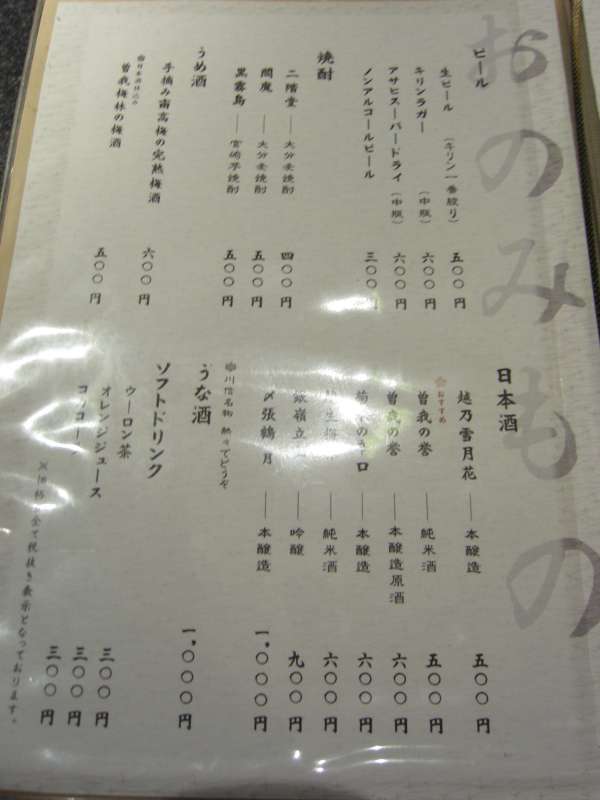 おのみもの
ビール
生ビール (キリン一番絞り) 五〇〇円
キリンラガー (中瓶) 六〇〇円
アサヒスーパードライ (中瓶) 六〇〇円
ノンアルコールビール 三〇〇円
焼酎
二階堂 ── 大分麦焼酎 四〇〇円
閻魔 ── 大分麦焼酎 五〇〇円
黒霧島 ── 宮崎芋焼酎 五〇〇円
うめ酒
手摘み南高梅の完熟梅酒 六〇〇円
※日本酒仕込み
曽我梅林の梅酒 五〇〇円
日本酒
越乃雪月花 ── 本醸造 五〇〇円
おすすめ
曽我の誉 ── 純米酒 五〇〇円
曽我の誉 ── 本醸造原酒 六〇〇円
口 ── 本醸造 六〇〇円
── 純米酒 六〇〇円
嶺立 ── 吟醸 九〇〇円
〆張鶴 月 ── 本醸造 一、〇〇〇円
※川信名物 熱々でどうぞ
うな酒 一、〇〇〇円
ソフトドリンク
ウーロン茶 三〇〇円
オレンジジュース 三〇〇円
三〇〇円
全て税抜き表示となっております。